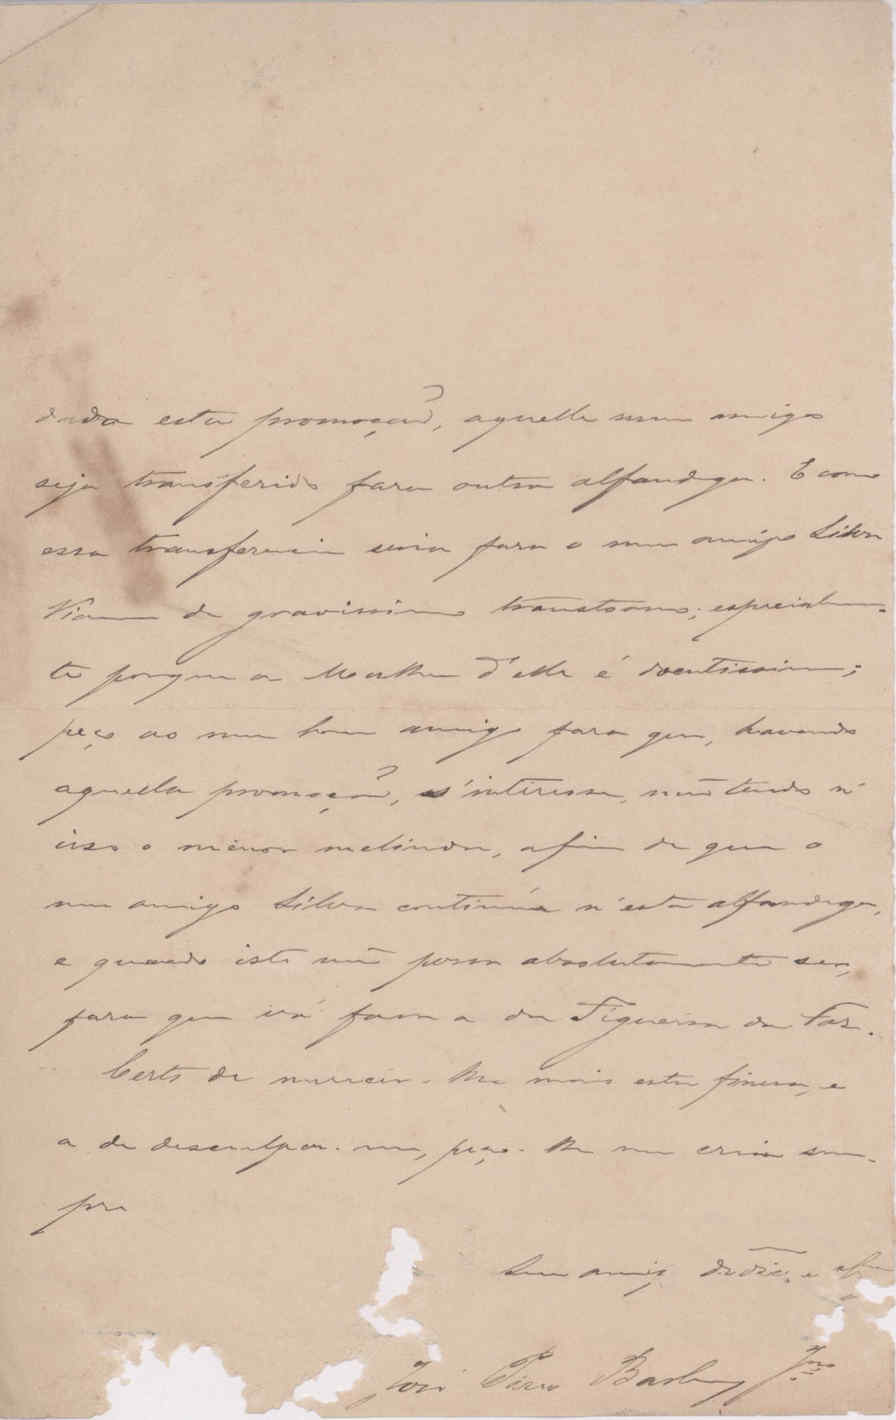 dada esta promoção, aquelle meu amigo
seja transferido para outra alfandega. E como
essa transferencia seria para o meu amigo Silva
Vianna de gravissimo transtorno, especialmen-
te porque a mulher d'elle é doentissima;
peço ao meu bom amigo para que, havendo
aquella promoção, s'interesse, não tendo n'
isso o menor melindre, afim de que o
meu amigo Silva continúe n'esta alfandega,
e quando isto não possa absolutamente ser,
para que vá para a da Figueira da Foz.
Certo de merecer-lhe mais esta fineza, e
a de desculpar-me, peço-lhe me creia sem-
pre
Seu amigo
José Barbosa Jnor